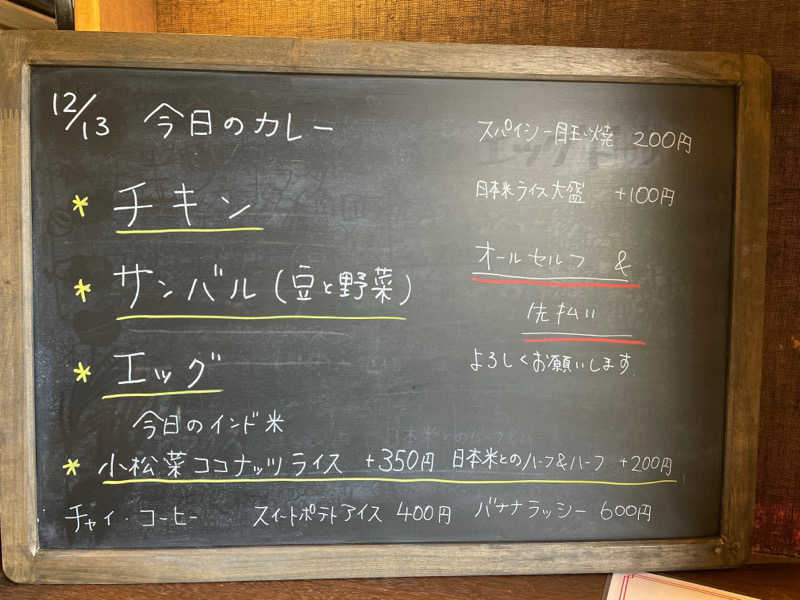 12/13 今日のカレー
* チキン
* サンバル(豆と野菜)
* エッグ
今日のインド米
* 小松菜ココナッツライス +350円 日本米とのハーフ&ハーフ +200円
チャイ・コーヒー スイートポテトアイス 400円 バナナラッシー 600円
スパイシー目玉焼 200円
日本米ライス大盛 +100円
オールセルフ &
先払い
よろしくお願いします。